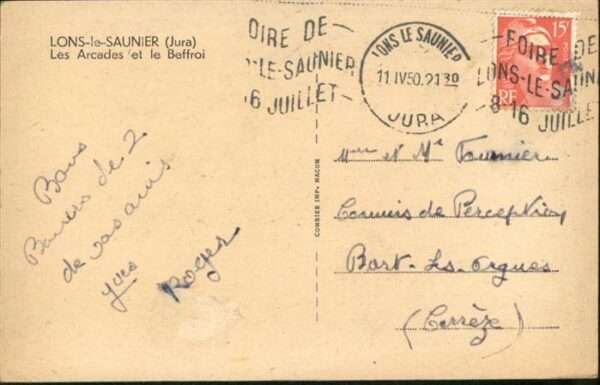 LONS-le-SAUNIER (Jura)
Les Arcades et le Beffroi
OIRE DE
-LE-SAUNIER
16 JUILLET
LONS LE SAUNIER
11 IV 50.2130
JURA
FOIRE DE
LONS-LE-SAUN
8-16 JUILLET
15F
RF
COMBIER IMP. MACON
Bons
Baisers de 2
de vos amis
Roger
et Me Tournier
Commis de Perception
Bort-les-Orgues
(Corrèze)